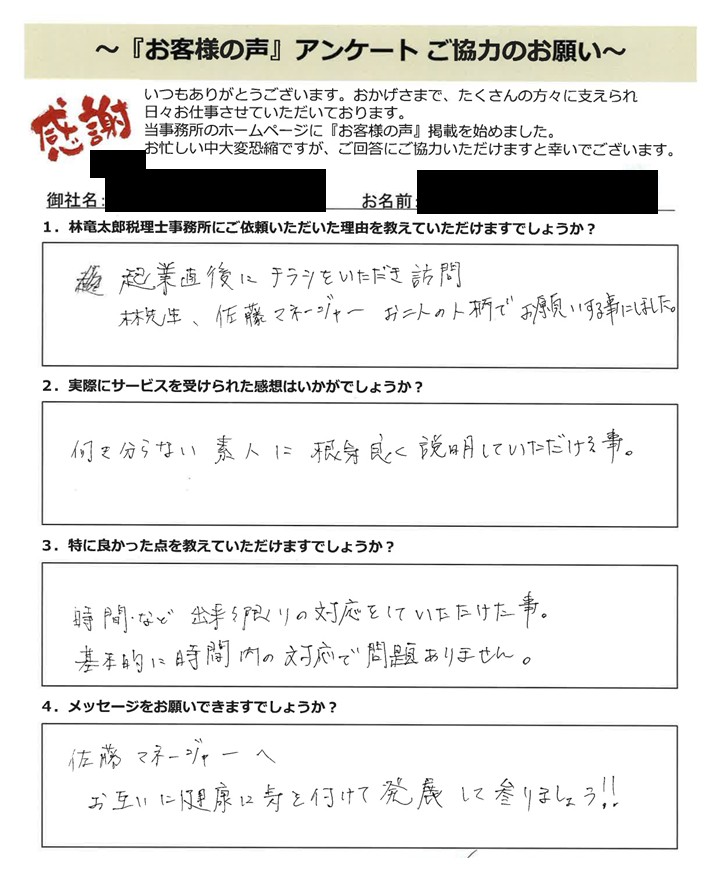 ～『お客様の声』アンケート ご協力のお願い～
感謝
いつもありがとうございます。おかげさまで、たくさんの方々に支えられ
日々お仕事させていただいております。
当事務所のホームページに『お客様の声』掲載を始めました。
お忙しい中大変恐縮ですが、ご回答にご協力いただけますと幸いでございます。
御社名: お名前:
1．林竜太郎税理士事務所にご依頼いただいた理由を教えていただけますでしょうか？
起業直後に チラシをいただき 訪問
林先生、佐藤マネージャー お二人の人柄で お願いする事にしました。
2．実際にサービスを受けられた感想はいかがでしょうか？
何も分らない 素人に 根気良く 説明していただける事。
3．特に良かった点を教えていただけますでしょうか？
時間など 出来る限りの対応をしていただけた事。
基本的に時間内の対応で問題ありません。
4．メッセージをお願いできますでしょうか？
佐藤マネージャーへ
お互いに健康に気を付けて 発展 して 参りましょう!!